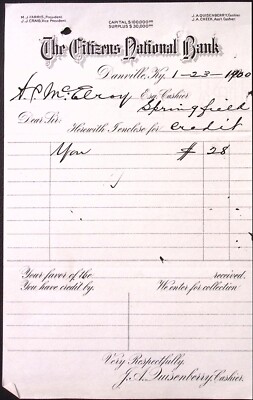 M.J. FARRIS, President.
J.J. CRAIG, Vice President.
CAPITAL $100,000.00
SURPLUS $30,000.00
J.A. QUISENBERRY, Cashier.
J.A. CHEEK, Asst. Cashier.
The Citizens National Bank
Danville, Ky. 1-23-1900
A.C. McElroy Esq. Cashier
Springfield
Dear Sir:
Herewith I enclose for Credit
You $ 28
Your favor of the received.
You have credit by. We enter for collection
Very Respectfully,
J.A. Quisenberry, Cashier.